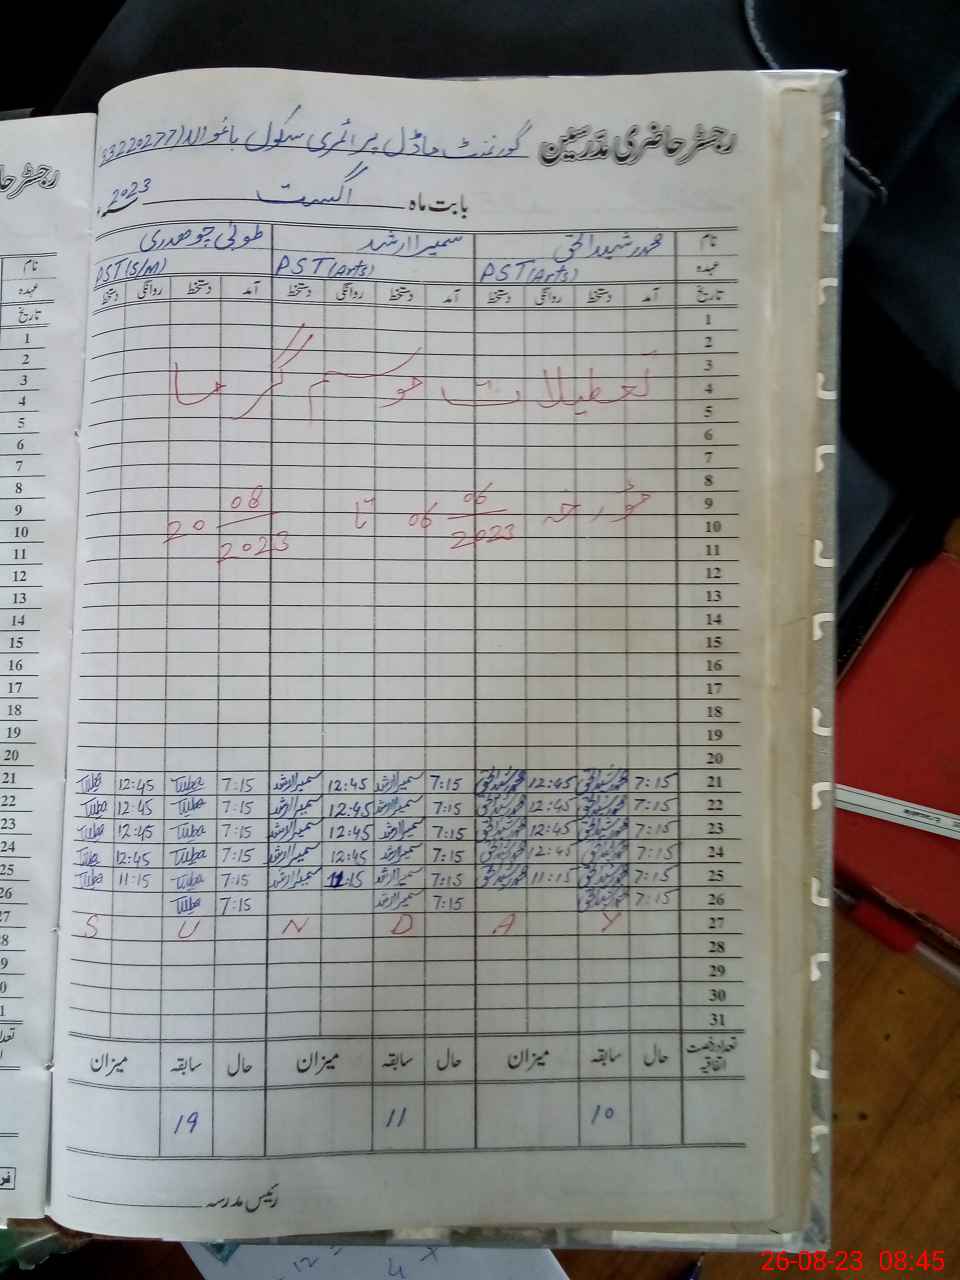 رجسٹر حاضری مدرسین گورنمنٹ ماڈل پرائمری سکول
بابت ماہ اگست 2023ء
نام محمد رشید الحق سمیرا ارشد طوبیٰ چوھدری
عہدہ PST (Arts) PST (Arts) PST (S/M)
تاریخ آمد دستخط روانگی دستخط آمد دستخط روانگی دستخط آمد دستخط روانگی دستخط
1
2
3
4
تعطیلات موسم گرما
5
6
7
8
9
10
مؤرخہ 06 06/2023 تا 20 08/2023
11
12
13
14
15
16
17
18
19
20
21 7:15 12:45 7:15 سمیرا ارشد 12:45 سمیرا ارشد 7:15 Tuba 12:45 Tuba
22 7:15 12:45 7:15 سمیرا ارشد 12:45 سمیرا ارشد 7:15 Tuba 12:45 Tuba
23 7:15 12:45 7:15 سمیرا ارشد 12:45 سمیرا ارشد 7:15 Tuba 12:45 Tuba
24 7:15 12:45 7:15 سمیرا ارشد 12:45 سمیرا ارشد 7:15 Tuba 12:45 Tuba
25 7:15 11:15 7:15 سمیرا ارشد 11:15 سمیرا ارشد 7:15 Tuba 11:15 Tuba
26 7:15 7:15 سمیرا ارشد 7:15 Tuba
27 S U N D A Y
28
29
30
31
تعداد رخصت اتفاقیہ حال سابقہ میزان حال سابقہ میزان حال سابقہ میزان
10 11 19
رئیس مدرسہ
رجسٹر حا
نام
عہدہ
تاریخ
1
2
3
4
5
6
7
8
9
10
11
12
13
14
15
16
17
18
19
20
21
22
23
24
25
26
27
26-08-23 08:45